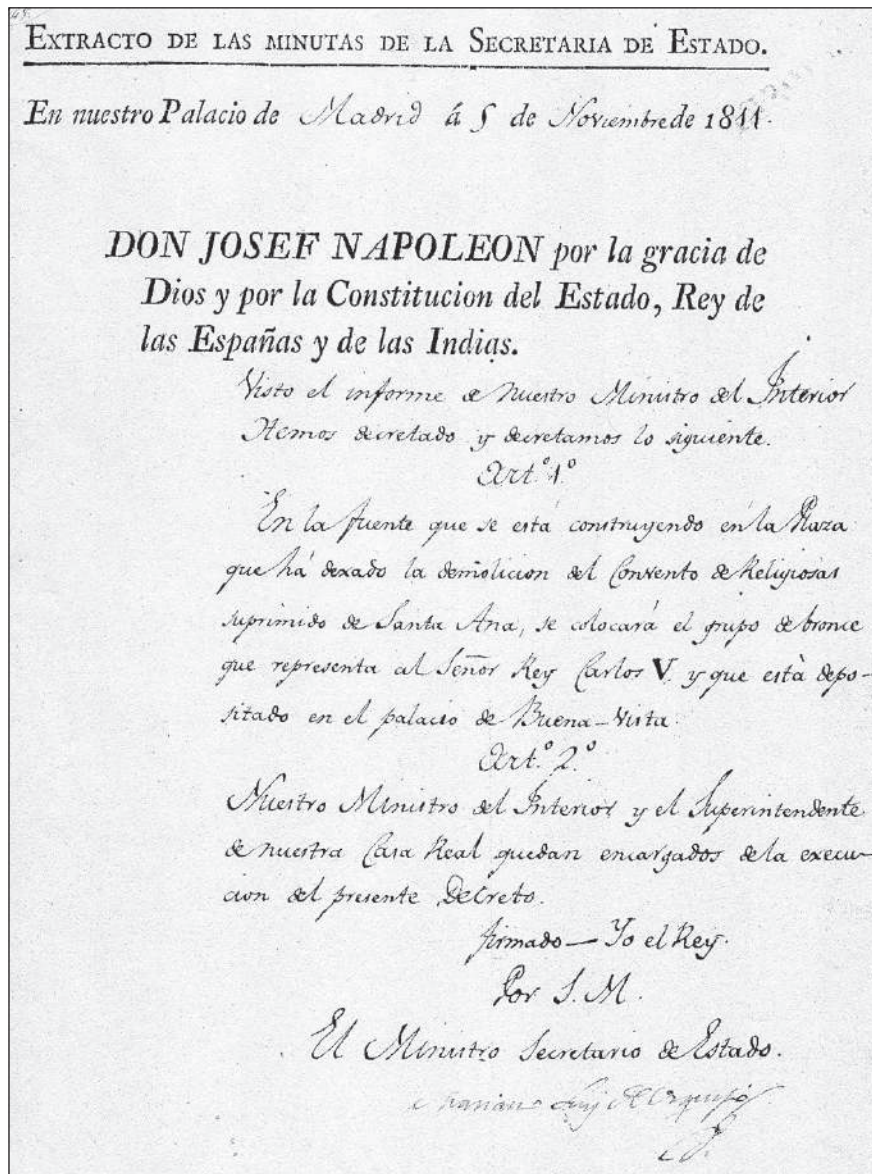 EXTRACTO DE LAS MINUTAS DE LA SECRETARIA DE ESTADO.
En nuestro Palacio de Madrid á 5 de Noviembre de 1811.
DON JOSEF NAPOLEON por la gracia de
Dios y por la Constitucion del Estado, Rey de
las Españas y de las Indias.
Visto el informe de nuestro Ministro del Interior
Hemos decretado y decretamos lo siguiente.
Art.º 1.º
En la fuente que se está construyendo en la Plaza
que há dexado la demolicion del Convento de Religiosas
suprimido de Santa Ana, se colocará el grupo de bronce
que representa al Señor Rey Carlos V. y que està depo-
sitado en el palacio de Buena-Vista.
Art.º 2.º
Nuestro Ministro del Interior y el Superintendente
de nuestra Casa Real quedan encargados de la execu-
cion del presente Decreto.
firmado — Yo el Rey.
Por S. M.
El Ministro Secretario de Estado.
Mariano Luis de Urquijo